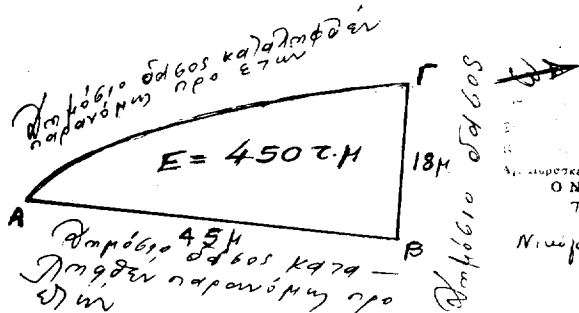 Δημόσιο δάσος καταληφθέν
παρανόμως προ ετών
Γ
Ε = 450 τ.μ
18μ
Δημόσιο δάσος
Α
45μ
Β
Δημόσιο δάσος κατα –
ληφθέν παρανόμως προ
ετών
Ο Ν